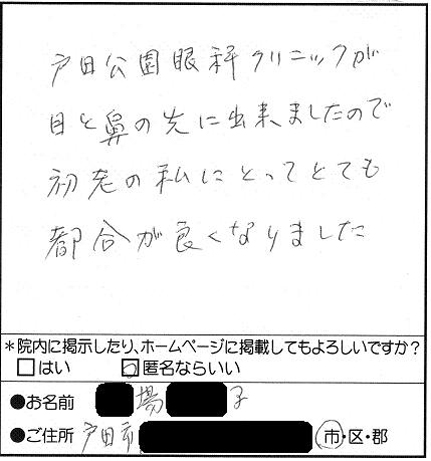 戸田公園眼科クリニックが
目と鼻の先に出来ましたので
初老の私にとってとても
都合が良くなりました
*院内に掲示したり、ホームページに掲載してもよろしいですか?
□はい ☑匿名ならいい
●お名前 場 子
●ご住所 戸田市 市・区・郡